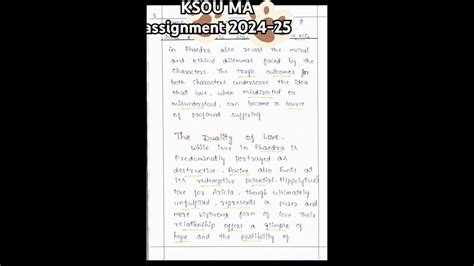 KSOU MA
assignment 2024-25
in Phaedra also reveal the moral
and ethical dilemmas faced by the
characters. The tragic outcomes for
both characters underscore the idea
that love, when misdirected or
misunderstood, can become a source
of profound suffering
The Duality of Love.
While love in Phaedra is
Predominantly portrayed as
destructive. Racine also hints at
at its redemptive potential. Hippolytus'
love for Aricia, though ultimately
unfulfilled, represents a purer and
more virtuous form of love. Their
relationship offers a glimpse of
hope and the possibility of